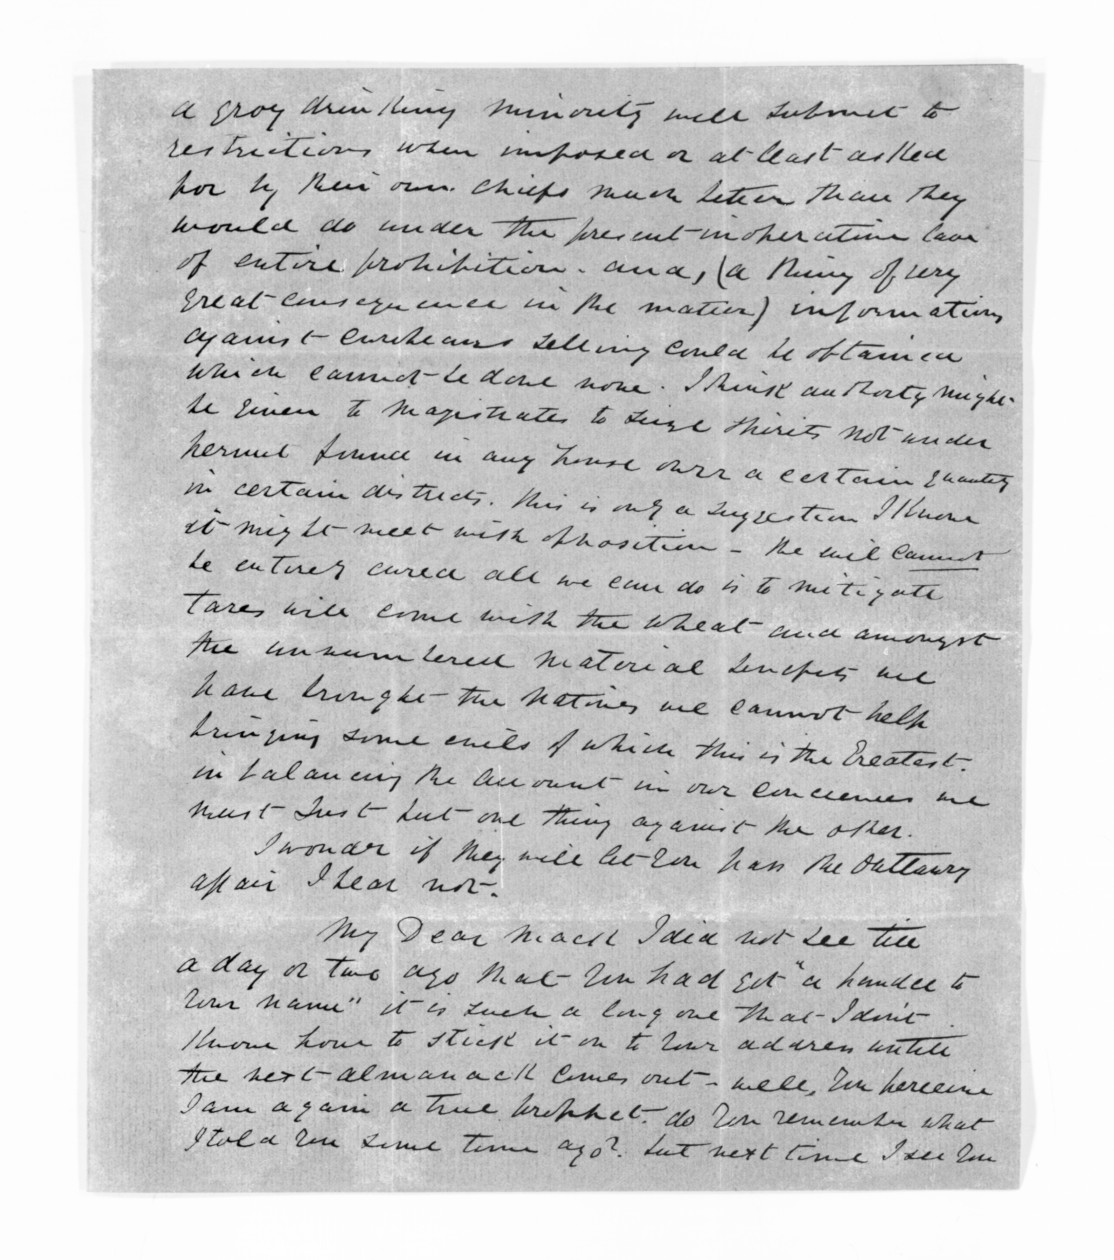 a grog drinking minority will submit to
restrictions when imposed or at least asked
for by their own chiefs much better than they
would do under the present inoperative law
of entire prohibition. and, (a thing of very
great consequence in the matter) informations
against Europeans selling could be obtained
which cannot be done now. I think authority might
be given to Magistrates to seize spirits not under
permit found in any house over a certain quantity
in certain districts. this is only a suggestion I know
it might meet with opposition - the evil cannot
be entirely cured all we can do is to mitigate
tares will come with the wheat and amongst
the unnumbered material benefits we
have brought the Natives we cannot help
bringing some evils of which this is the Greatest.
in balancing the account in our conciences we
must Just put one thing against the other.
I wonder if they will let you pass the Outlawry
affair I hear not.
My Dear Mack I did not see till
a day or two ago that you had got "a handle to
your name" it is such a long one that I don't
know how to stick it on to your address untill
the next almanack comes out - well, you perceive
I am again a true prophet. do you remember what
I told you some time ago? but next time I see you